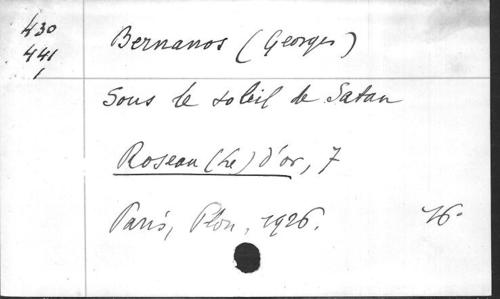 430
441
1
Bernanos (Georges)
Sous le soleil de Satan
Roseau (Le) d'or, 7
Paris, Plon, 1926. 16°